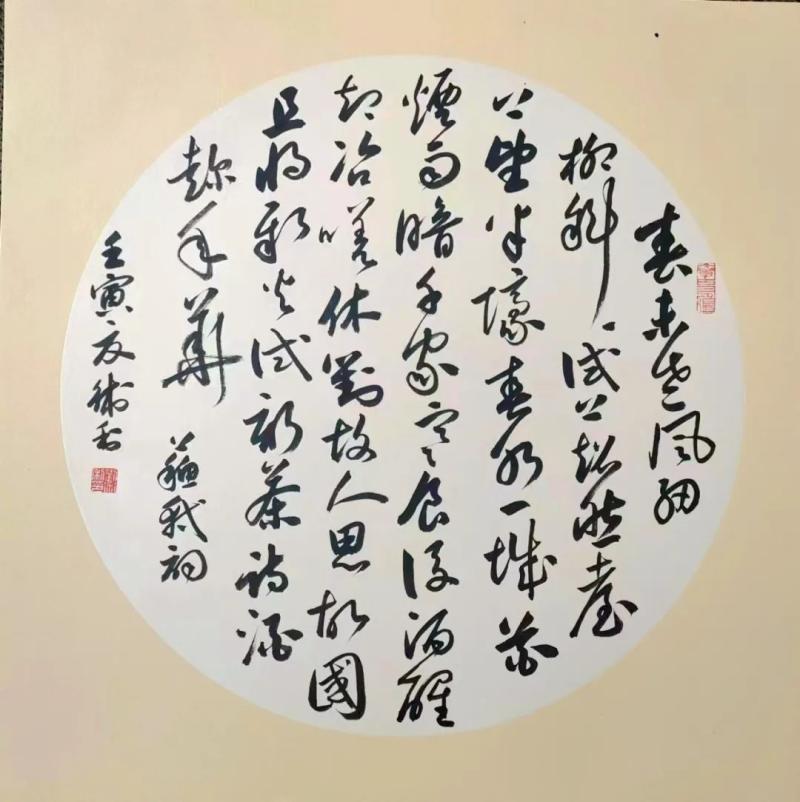 春未老风细
柳斜々试上超然臺
上望半壕春水一城花
煙雨暗千家寒食後酒醒
却咨嗟休對故人思故國
且将新火试新茶诗酒
趁年華 蘇軾词
壬寅